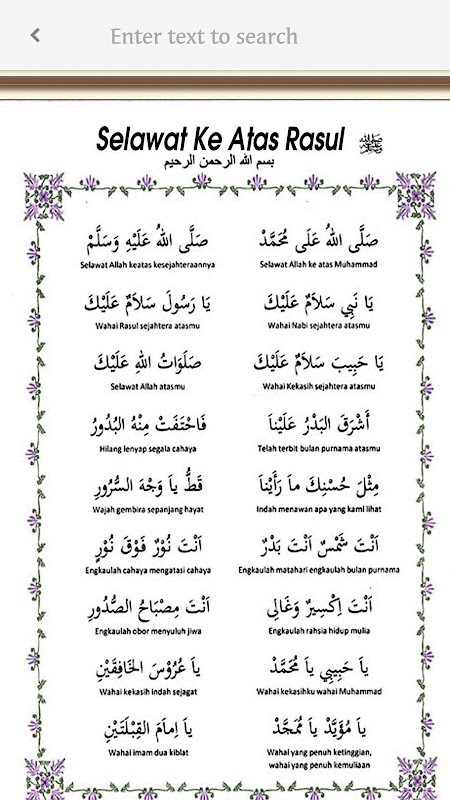 Enter text to search
Selawat Ke Atas Rasul ﷺ
بسم الله الرحمن الرحيم
صَلَّى اللهُ عَلَى مُحَمَّدْ
Selawat Allah ke atas Muhammad
صَلَّى اللهُ عَلَيْهِ وَسَلَّمْ
Selawat Allah keatas kesejahteraannya
يَا نَبِي سَلاَمٌ عَلَيْكَ
Wahai Nabi sejahtera atasmu
يَا رَسُولَ سَلاَمٌ عَلَيْكَ
Wahai Rasul sejahtera atasmu
يَا حَبِيبَ سَلاَمٌ عَلَيْكَ
Wahai Kekasih sejahtera atasmu
صَلَوَاتُ اللهِ عَلَيْكَ
Selawat Allah atasmu
أَشْرَقَ البَدْرُ عَلَيْناَ
Telah terbit bulan purnama atasmu
فَاحْتَفَتْ مِنْهُ البُدُورُ
Hilang lenyap segala cahaya
مِثْلَ حُسْنِكَ ماَ رَأَيْناَ
Indah menawan apa yang kami lihat
قَطُّ ياَ وَجْهَ السُّرُورِ
Wajah gembira sepanjang hayat
اَنْتَ شَمْسٌ اَنْتَ بَدْرٌ
Engkaulah matahari engkaulah bulan purnama
اَنْتَ نُوْرٌ فَوْقَ نُوْرٍ
Engkaulah cahaya mengatasi cahaya
اَنْتَ اِكْسِيرٌ وَغَالِي
Engkaulah rahsia hidup mulia
اَنْتَ مِصْبَاحُ الصُّدُورِ
Engkaulah obor menyuluh jiwa
ياَ حَبِيبِي ياَ مُحَمَّدْ
Wahai kekasihku wahai Muhammad
ياَ عَرُوْسَ الخَافِقَيْنِ
Wahai kekasih indah sejagat
ياَ مُؤَيَّدْ ياَ مُمَجَّدْ
Wahai yang penuh ketinggian,
wahai yang penuh kemuliaan
ياَ اِمَامَ القِبْلَتَيْنِ
Wahai imam dua kiblat